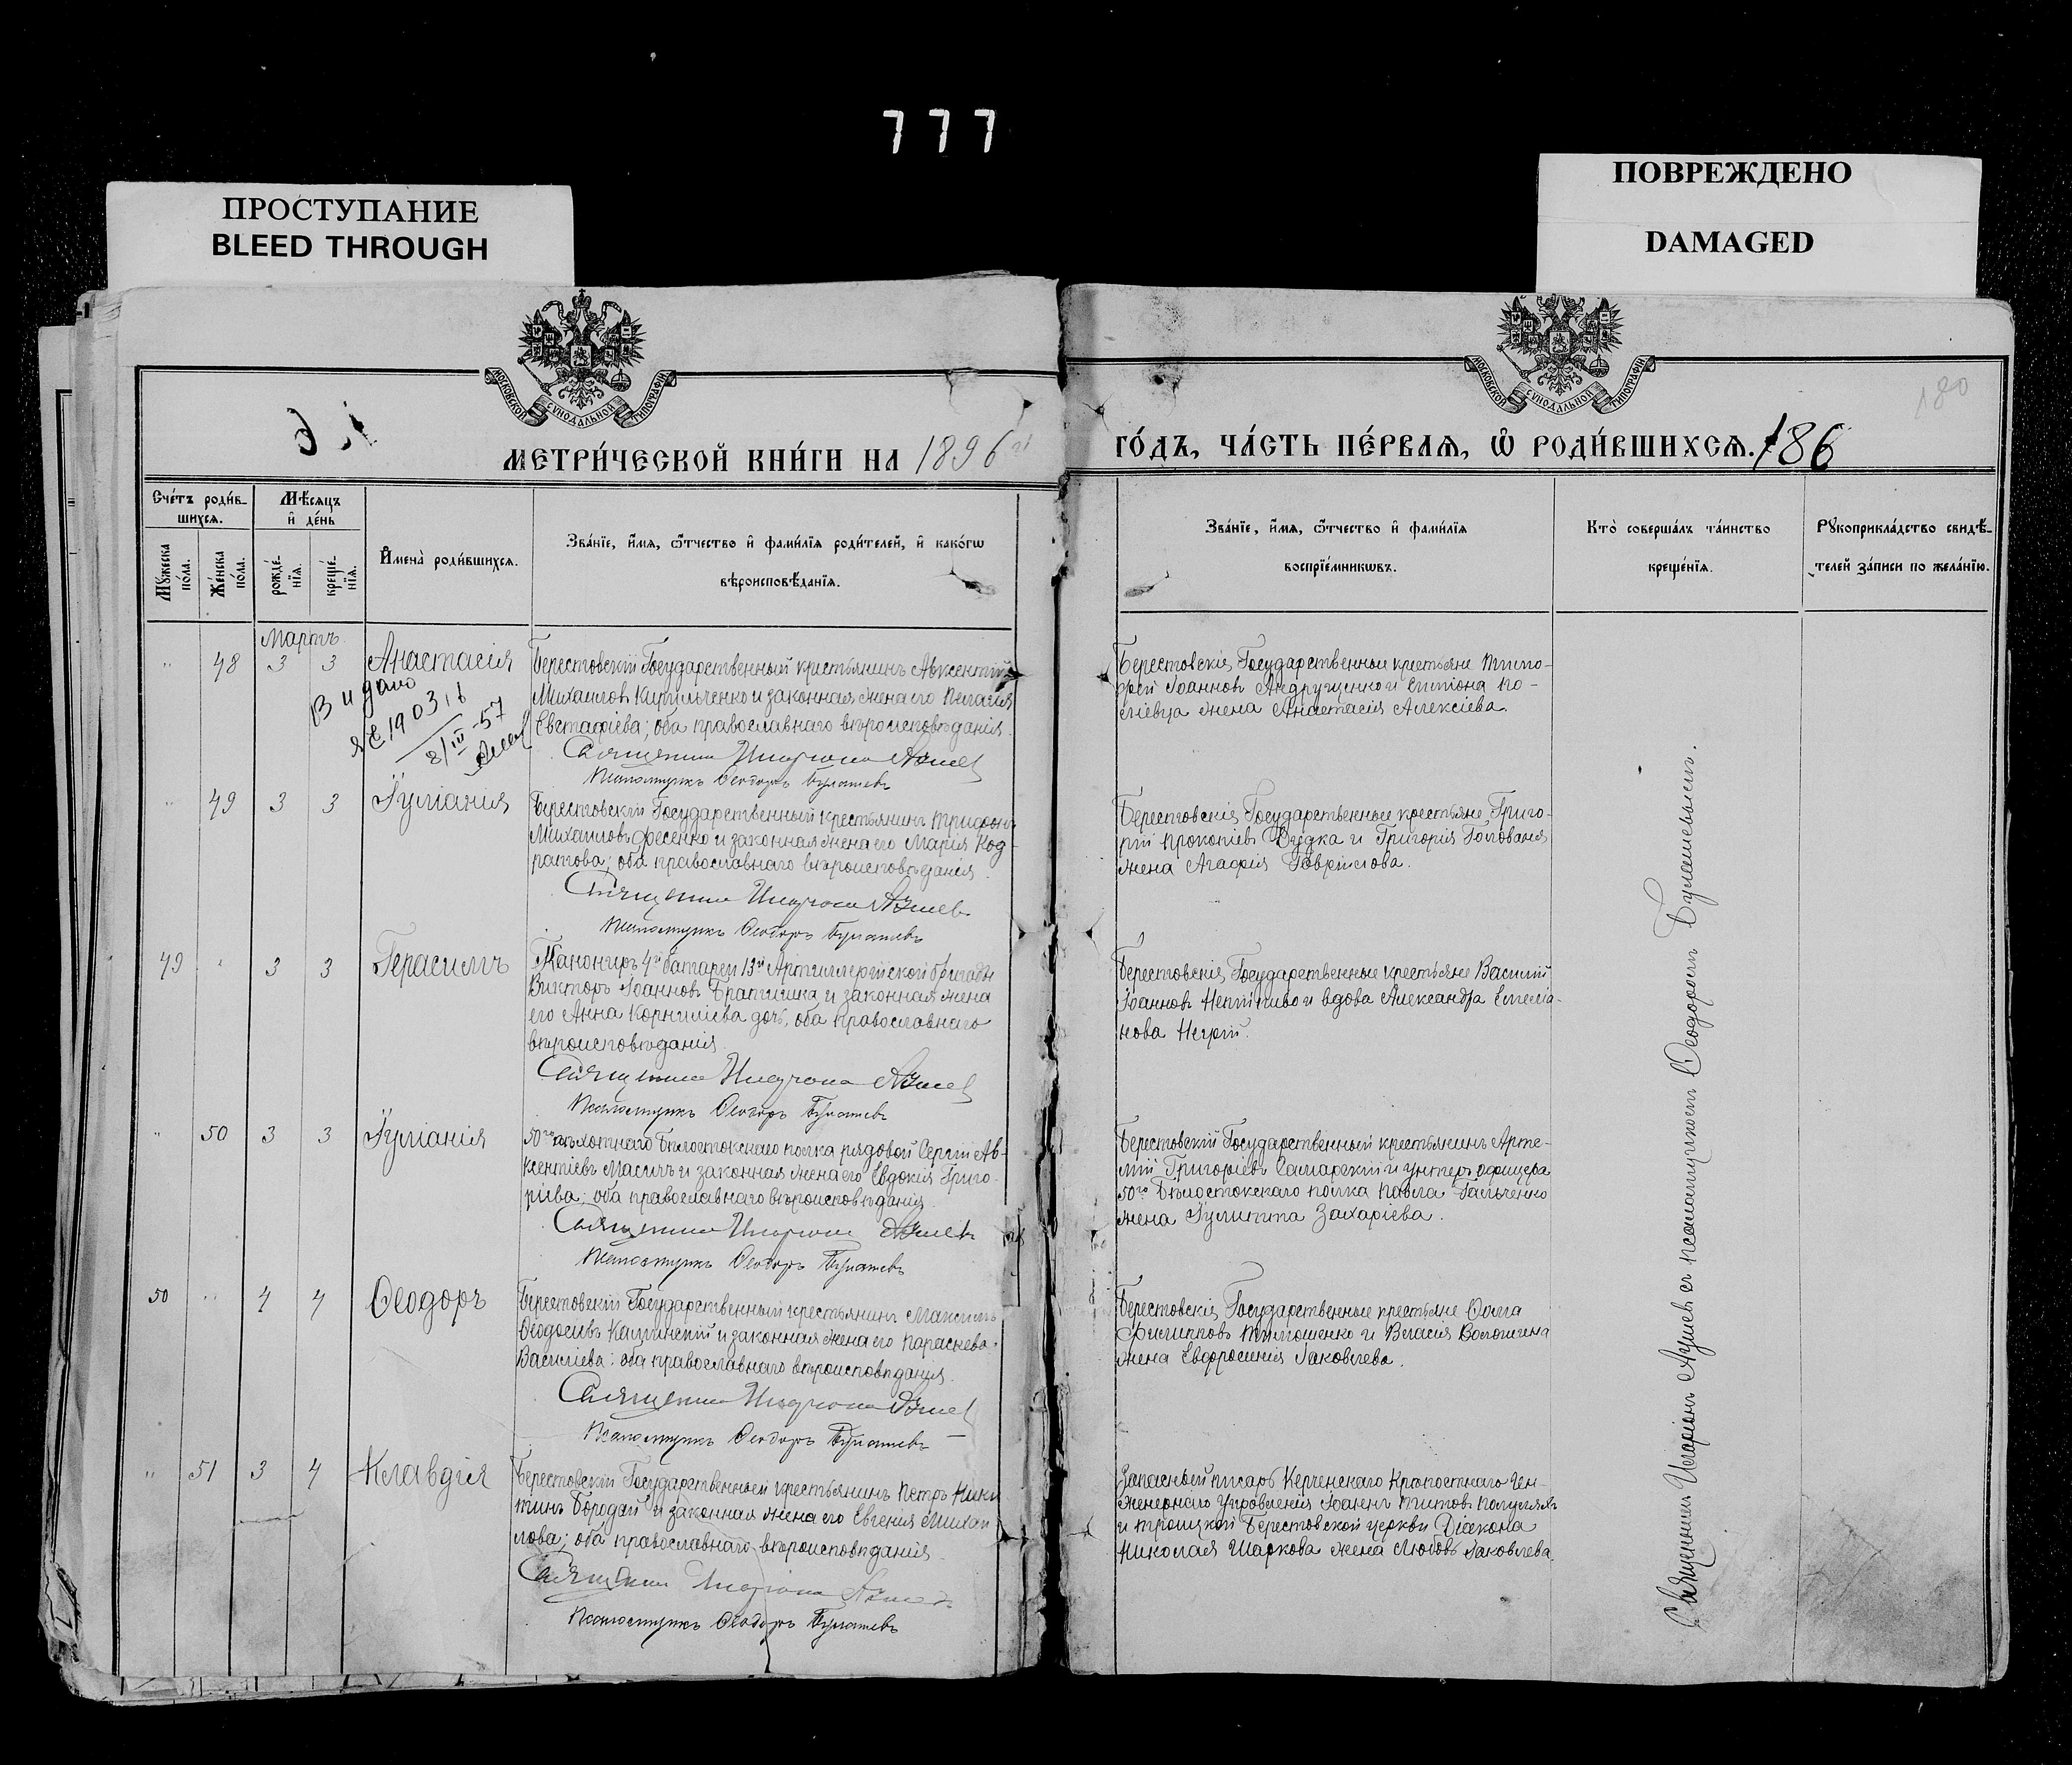 777
ПРОСТУПАНИЕ
BLEED THROUGH
ПОВРЕЖДЕНО
DAMAGED
МОСКОВСКОЙ СѴНОДАЛЬНОЙ ТИПОГРАФІИ
МОСКОВСКОЙ СѴНОДАЛЬНОЙ ТИПОГРАФІИ
180
МЕТРИ́ЧЕСКОЙ КНИ́ГИ НА 1896
ГО́ДЪ, ЧА́СТЬ ПЕ́РВАЯ, Ѡ РОДИ́ВШИХСЯ.
186
Сче́тъ роди́в-
шихся.
Мꙋжеска по́ла.
Же́нска по́ла.
Мѣ́сяцъ
и де́нь
рожде́-
нїя.
креще́-
нїя.
Имена̀ роди́вшихся.
Зва́нїе, и́мя, ѻ҆́тчество и фами́лїя роди́телей, и како́гѡ
вѣроисповѣ́данїя.
Зва́нїе, и́мя, ѻ҆́тчество и фами́лїя
воспрїе́мникѡвъ.
Кто̀ соверша́лъ та́инство
креще́нїя.
Рꙋкоприкла́дство свидѣ́-
телей за́писи по жела́нїю.
Мартъ
" 48 3 3 Анастасія
Берестовскій Государственный крестьянинъ Авксентій
Михаиловъ Кирильченко и законная жена его Пелагія
Евстафіева; оба православнаго вѣроисповѣданія.
Священникъ Иларіонъ
Псаломщикъ Ѳеодоръ Булашевъ
Берестовскіе Государственные крестьяне Тимо-
фей Іоанновъ Андрущенко и
жена Анастасія Алексіева.
190316
8/III-57
" 49 3 3 Іуліанія
Берестовскій Государственный крестьянинъ Трифонъ
Михаиловъ Фесенко и законная жена его Марія Код-
ратова; оба православнаго вѣроисповѣданія.
Священникъ Иларіонъ
Псаломщикъ Ѳеодоръ Булашевъ
Берестовскіе Государственные крестьяне Григо-
рій Прокопіевъ Дудка и Григорія Голована
жена Агафія Гавріилова.
49 " 3 3 Герасимъ
Канониръ 4й батареи 13й Артиллерійской бригады
Викторъ Іоанновъ и законная жена
его Анна Корниліева дочь, оба православнаго
вѣроисповѣданія.
Священникъ Иларіонъ
Псаломщикъ Ѳеодоръ Булашевъ
Берестовскіе Государственные крестьяне Василій
Іоанновъ Непіпиво и вдова Александра Емеліа-
нова Негрій.
" 50 3 3 Іуліанія
50го пѣхотнаго Бѣлостокскаго полка рядовой Сергій Ав-
ксентіевъ Масичъ и законная жена его Евдокія Григо-
ріева; оба православнаго вѣроисповѣданія.
Священникъ Иларіонъ
Псаломщикъ Ѳеодоръ Булашевъ
Берестовскій Государственный крестьянинъ Арте-
мій Григоріевъ Самарскій и унтеръ офицера
50го Бѣлостокскаго полка Павла Гальченко
жена Іулитта Захаріева.
50 " 4 4 Ѳеодоръ
Берестовскій Государственный крестьянинъ Максимъ
Ѳеодосіевъ Калинскій и законная жена его Параскева
Василіева; оба православнаго вѣроисповѣданія.
Священникъ Иларіонъ
Псаломщикъ Ѳеодоръ Булашевъ
Берестовскіе Государственные крестьяне Ѳома
Филипповъ Тимошенко и Власія Волошена
жена Евфросинія Іаковлева.
" 51 3 4 Клавдія
Берестовскій Государственный крестьянинъ Петръ Ники-
тинъ Бородай и законная жена его Евгенія Михаи-
лова; оба православнаго вѣроисповѣданія.
Священникъ Иларіонъ
Псаломщикъ Ѳеодоръ Булашевъ
Запасный писарь Керченскаго Крѣпостнаго Ин-
женернаго Управленія Іоаннъ Титовъ
и Троицкой Берестовской церкви Діакона
Николая Шаркова жена Любовь Іаковлева.
Священникъ Иларіонъ съ псаломщикомъ Ѳеодоромъ Булашевымъ.